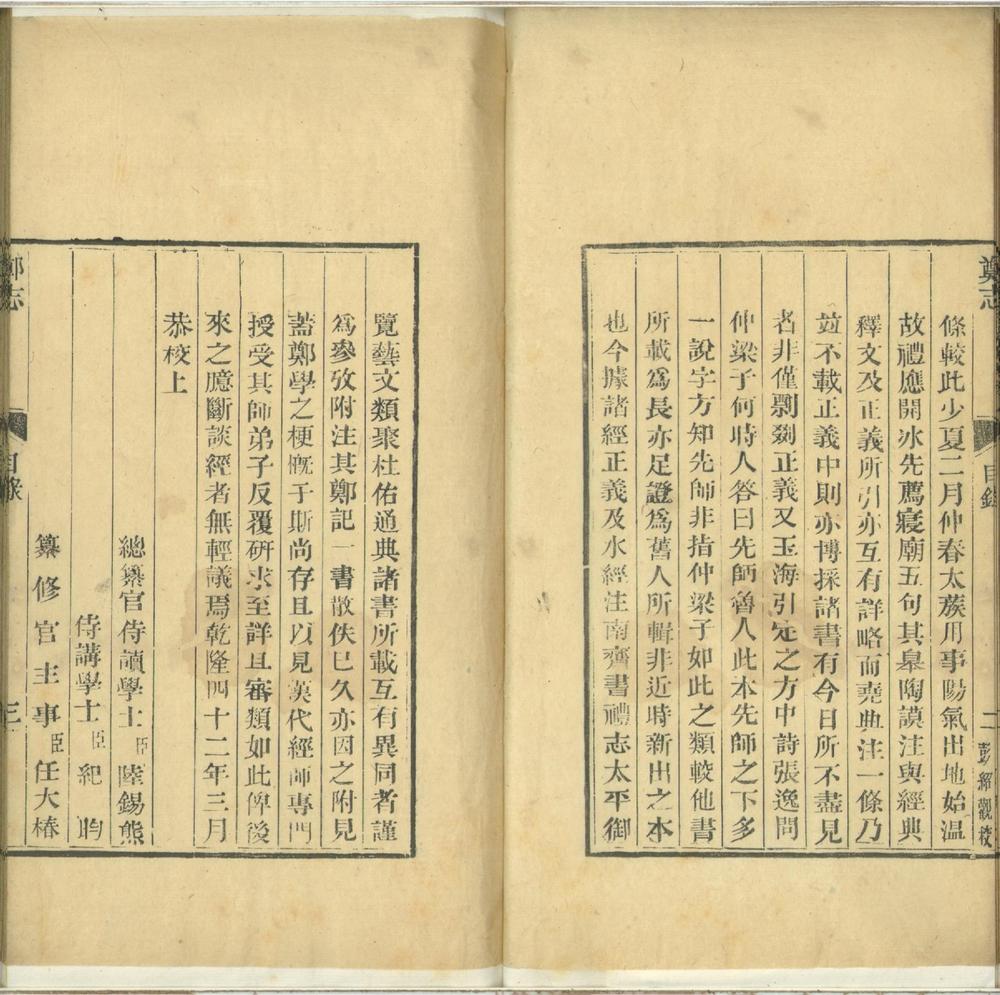 鄭志
目錄
二
彭紹觀校
條較此少夏二月仲春太蔟用事陽氣出地始溫
故禮應開冰先薦寢廟五句其皐陶謨注與經典
釋文及正義所引亦互有詳略而堯典注一條乃
竝不載正義中則亦博採諸書有今日所不盡見
者非僅剽剟正義又玉海引定之方中詩張逸問
仲梁子何時人答曰先師魯人此本先師之下多
一說字方知先師非指仲梁子如此之類較他書
所載爲長亦足證爲舊人所輯非近時新出之本
也今據諸經正義及水經注南齊書禮志太平御
覽藝文類聚杜佑通典諸書所載互有異同者謹
爲參攷附注其鄭記一書散佚已久亦因之附見
葢鄭學之梗槪于斯尚存且以見漢代經師專門
授受其師弟子反覆硏求至詳且審類如此俾後
來之臆斷談經者無輕議焉乾隆四十二年三月
恭校上
總纂官侍讀學士臣陸錫熊
侍講學士臣紀昀
纂修官主事臣任大椿
鄭志
目錄
三